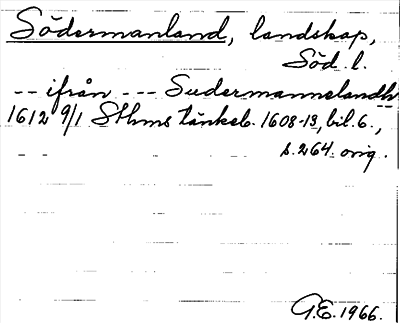 Södermanland, landskap,
Söd. l.
-- ifrån --- Sudermannelandh --
1612 9/1 Sthms tänkeb. 1608-13, bil. 6.,
s. 264. orig.
G.E. 1966.